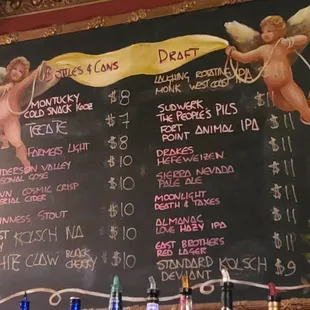 & Cans
Draft
Montucky
Cold Snack
$8
Tecate
$7
Farmers Light
$8
Anderson Valley
Gose
$10
Cosmic Crisp
Cider
$10
Guinness Stout
$10
Kolsch NA
$10
White Claw Black
Cherry
$10
Laughing
Monk West Coast IPA
$11
Sudwerk
The People's Pils
$11
Fort
Point Animal IPA
$11
Drakes
Hefeweizen
$11
Sierra Nevada
Pale Ale
$11
Moonlight
Death & Taxes
$11
Almanac
Love Hazy IPA
$11
East Brothers
Red Lager
$11
Standard Kolsch
Deviant
$9